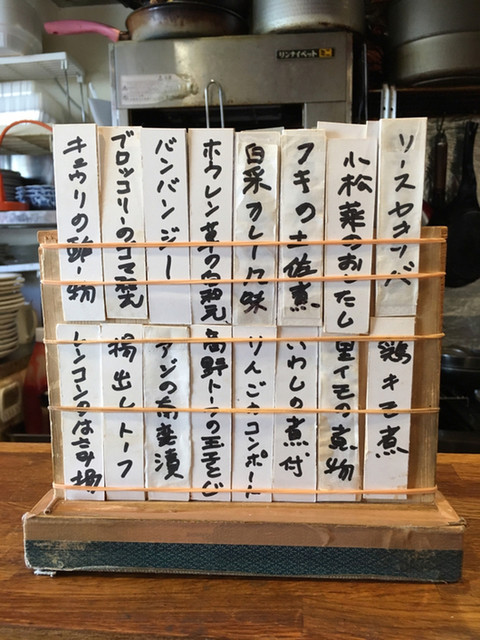 リンナイペット
ソースヤキソバ
小松菜のおしたし
フキの土佐煮
白菜カレー風味
ホウレン草の白和え
バンバンジー
ブロッコリーのゴマ和え
キュウリの酢の物
鶏キモ煮
里イモの煮物
いわしの煮付
りんごのコンポート
高野トーフの玉子とじ
アジの南蛮漬
揚出しトーフ
レンコンのはさみ揚